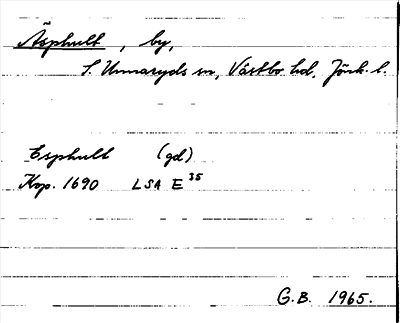 Äsphult, by,
S. Unnaryds sn, Västbo hd, Jönk. l.
Esphult (gd)
Kop. 1690 LSA E 35
G.B. 1965.